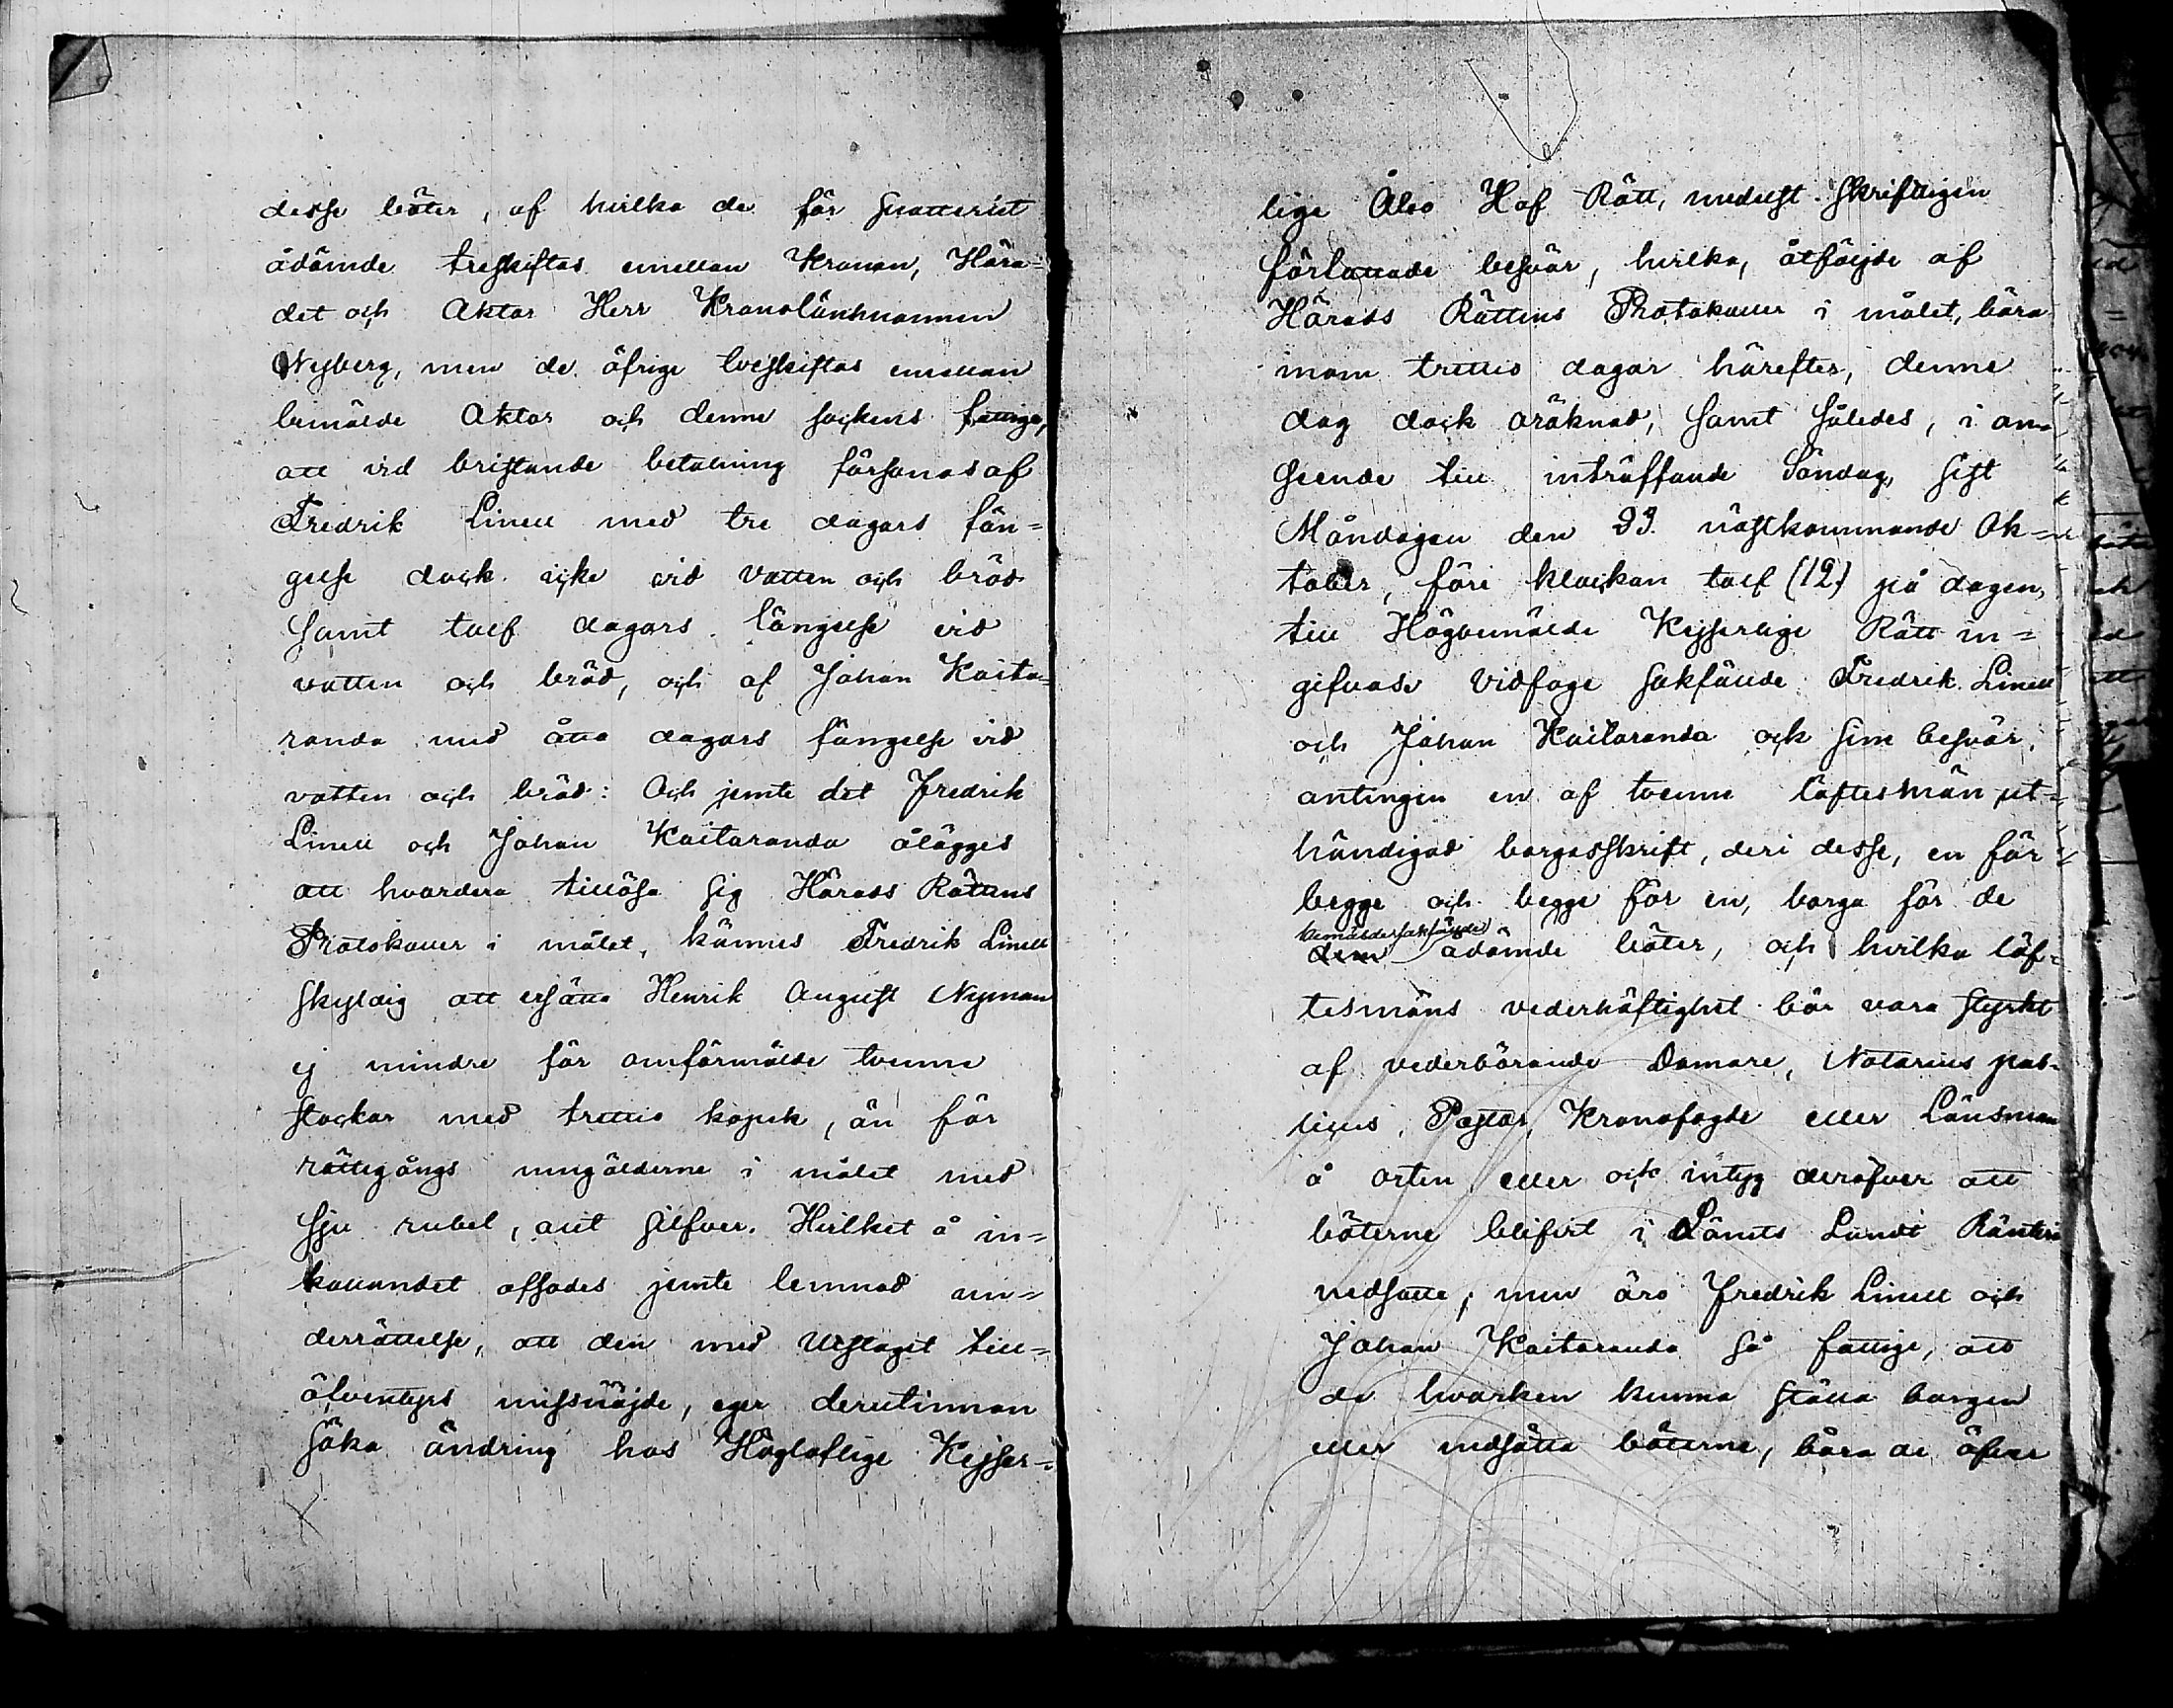 desse böter, af hvilka de för snatteriet
ådömde treskiftas emellan Kronan, Hära-
det och Aktor Herr Kronolänsmannen
Nyberg, men de öfrige tveskiftas emellan
bemälde Aktor och denne sockens fattige,
att vid bristande betalning försonas af
Fredrik Linell med tre dagars fän-
gelse dock icke vid vatten och bröd
samt tolf dagars fängelse vid
vatten och bröd, och af Johan Kaita-
randa med åtta dagars fängelse vid
vatten och bröd: Och jemte det Fredrik
Linell och Johan Kaitaranda ålägges
att hvardera tillösa sig Härads Rättens
Protokoller i målet, kännes Fredrik Linell
skyldig att ersätta Henrik August Nyman
ej mindre för omförmälde tvenne
stockar med trettio kopek, än för
rättegångs umgälderne i målet med
sju rubel, allt silfver. Hvilket å in-
kallandet afsades jemte lemnad un-
derrättelse, att den med Utslaget till-
äfventyrs missnöjde, eger derutinnan
söka ändring hos Högloflige Kejser-
lige Åbo Hof Rätt, medelst skriftligen
författade besvär, hvilka, åtföljde af
Härads Rättens Protokoller i målet, böra
inom trettio dagar härefter, denne
dag dock oräknad, samt således, i an-
seende till inträffande Söndag, sist
Måndagen den 23. nästkommande Ok-
tober, före klockan tolf (12) på dagen,
till Högbemälde Kejserlige Rätt in-
gifvas: Vidfoge sakfälde Fredrik Linell
och Johan Kaitaranda ock sine besvär,
antingen en af tvenne löftesmän ut-
händigad borgesskrift, deri desse, en för
begge och begge för en, borga för de
bemälde sakfällde
dem ådömde böter, och hvilka löf-
tesmäns vederhäftighet bör vara styrkt
af vederbörande Domare, Notarius pub-
licus, Pastor, Kronofogde eller Länsman
å orten eller ock intyg deröfver att
böterne blifvit i Länets Landt Ränteri
nedsatte; men äro Fredrik Linell och
Johan Kaitaranda så fattige, att
de hvarken kunna ställa borgen
eller nedsätta böterne, böra de öfver